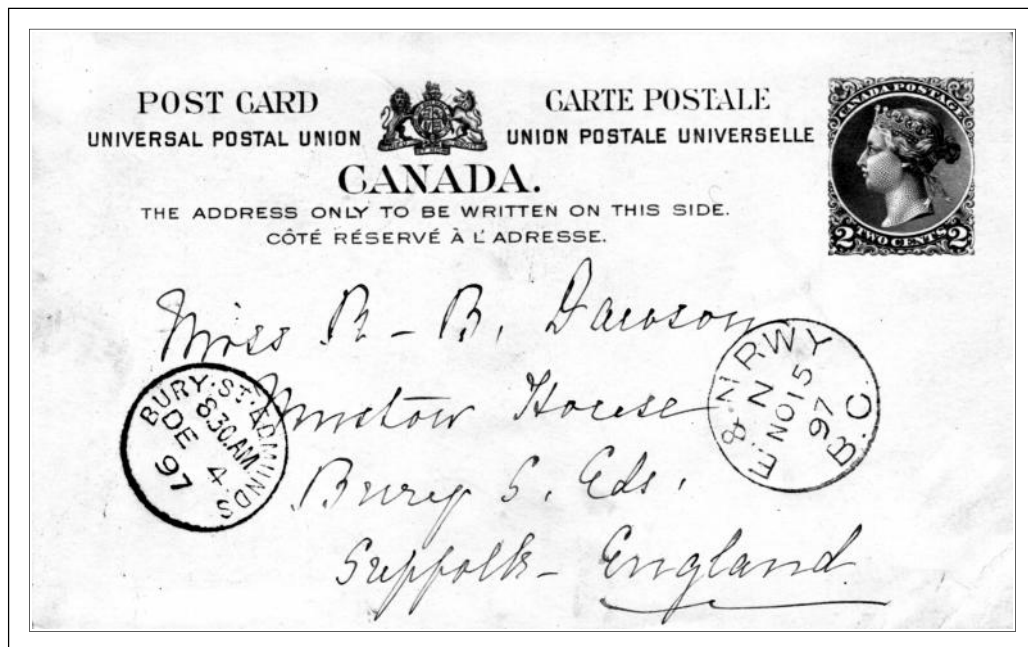 POST CARD
CARTE POSTALE
UNIVERSAL POSTAL UNION
UNION POSTALE UNIVERSELLE
CANADA.
THE ADDRESS ONLY TO BE WRITTEN ON THIS SIDE.
CÔTÉ RÉSERVÉ À L'ADRESSE.
CANADA POSTAGE
2 TWO CENTS 2
Miss R - B. Dawson
House
Bury S. Eds.
Suffolk - England
BURY·ST·ADMUNDS
8.30.AM
DE 4
97
E. & N. RWY
N
NO 15
97
B.C.